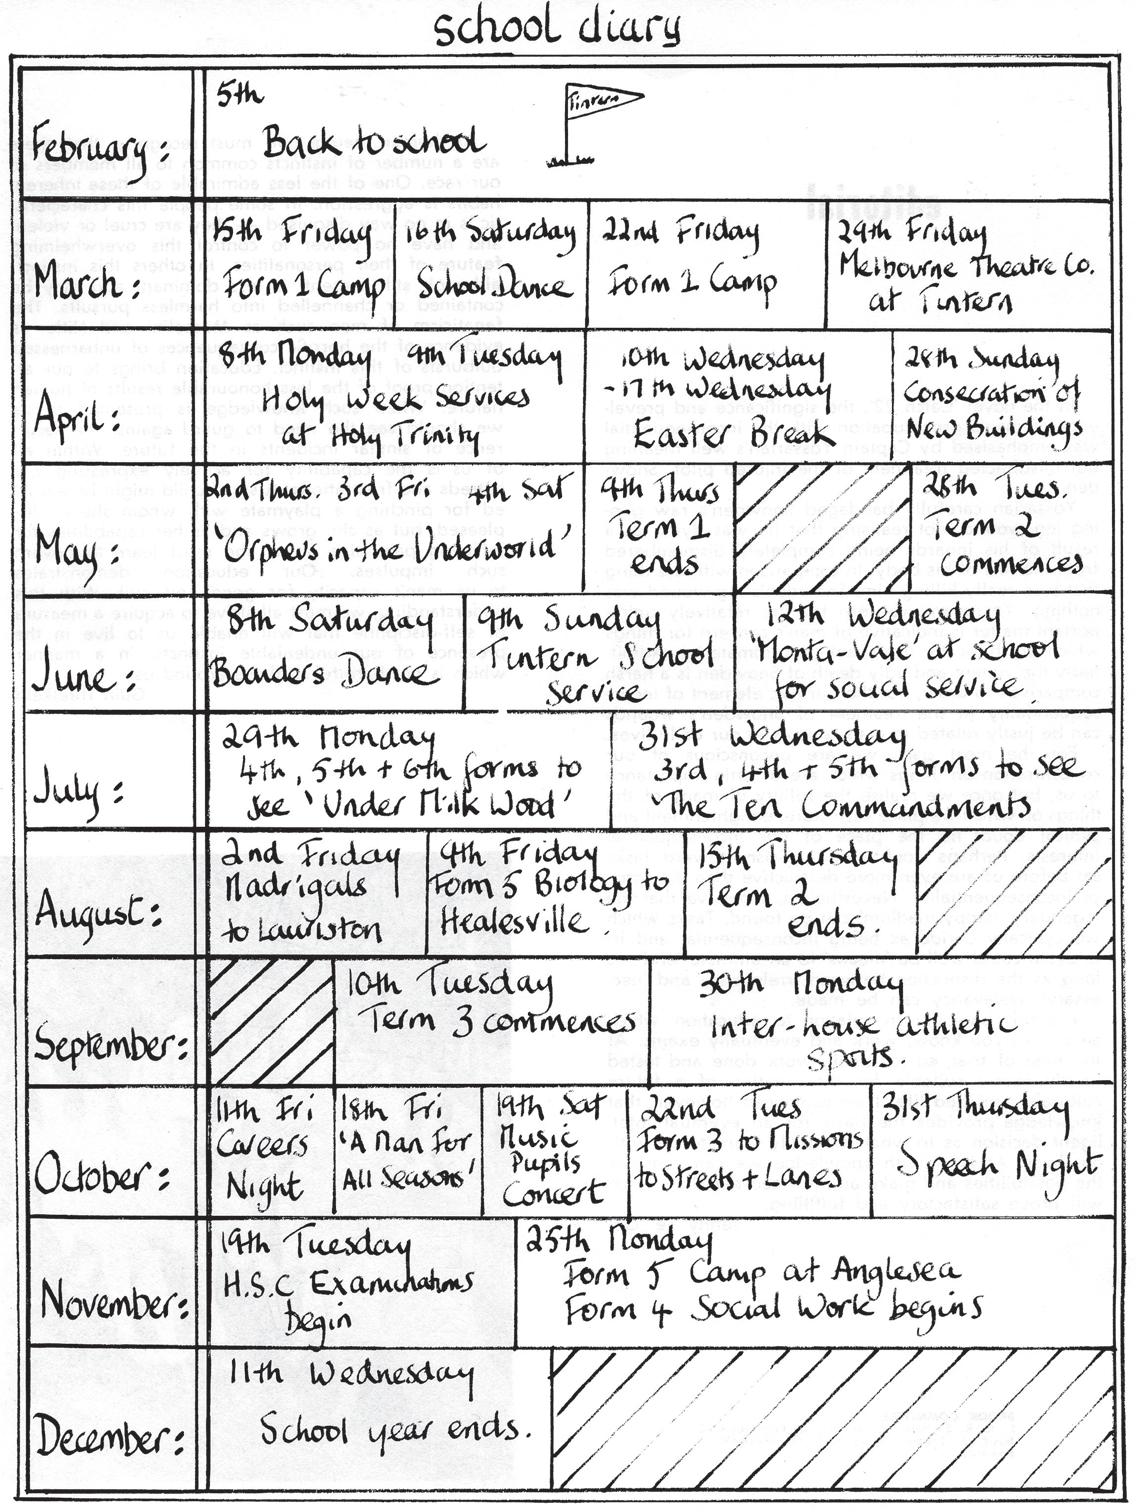 school diary
February:
5th
Back to school
Tintern
March:
15th Friday
Form 1 Camp
16th Saturday
School Dance
22nd Friday
Form 1 Camp
29th Friday
Melbourne Theatre Co.
at Tintern
April:
8th Monday 9th Tuesday
Holy Week Services
at Holy Trinity
10th Wednesday
-17th Wednesday
Easter Break
28th Sunday
Consecration of
New Buildings
May:
2nd Thurs. 3rd Fri 4th Sat
'Orpheus in the Underworld'
9th Thurs
Term 1
ends
28th Tues.
Term 2
commences
June:
8th Saturday
Boarders Dance
9th Sunday
Tintern School
Service
12th Wednesday
Monta-Vale at school
for social service
July:
29th Monday
4th, 5th + 6th forms to
see 'Under Milk Wood'
31st Wednesday
3rd, 4th + 5th forms to see
'The Ten Commandments
August:
2nd Friday
Madrigals
to Lauriston
9th Friday
Form 5 Biology to
Healesville.
15th Thursday
Term 2
ends.
September:
10th Tuesday
Term 3 commences
30th Monday
Inter-house athletic
sports.
October:
11th Fri
Careers
Night
18th Fri
'A Man For
All Seasons'
19th Sat
Music
Pupils
Concert
22nd Tues
Form 3 to Missions
to Streets + Lanes
31st Thursday
Speech Night
November:
19th Tuesday
H.S.C Examinations
begin
25th Monday
Form 5 Camp at Anglesea
Form 4 Social Work begins
December:
11th Wednesday
School year ends.